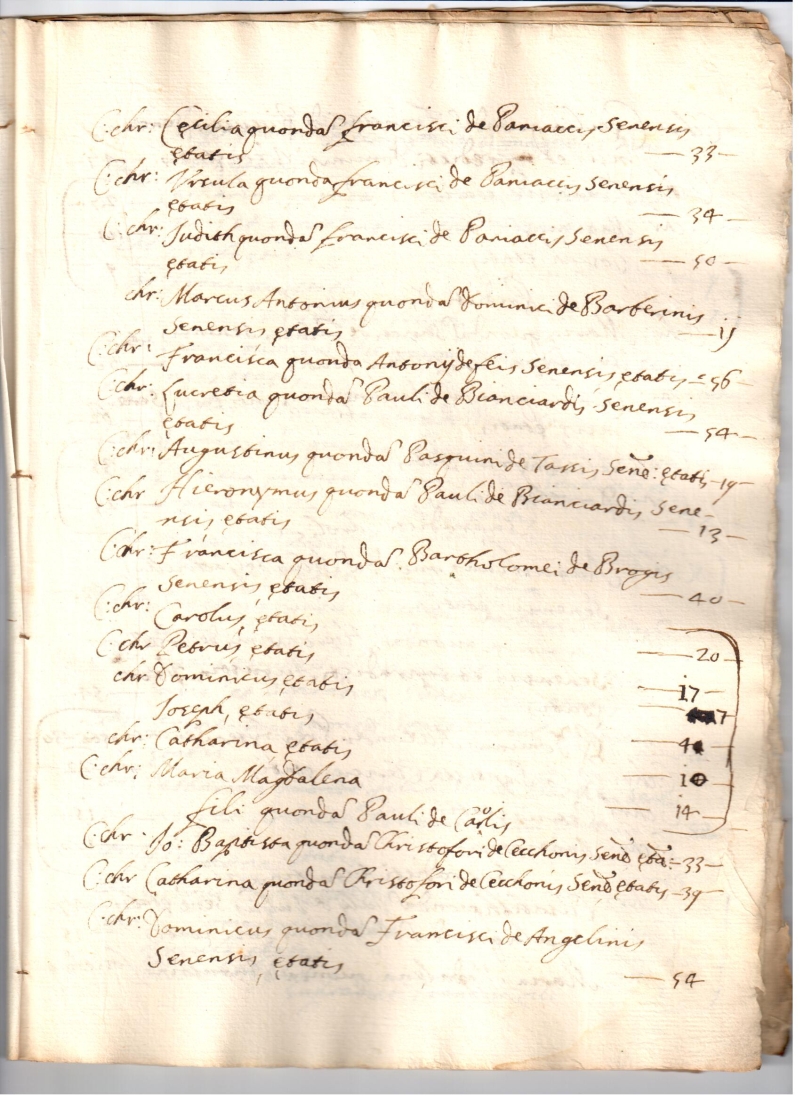 C: chr: Cęcilia quonda͂ francisci de Paniaccis Senensis
ętatis — 33 —
C: chr: Ursula quonda francisci de Paniaccis Senensis
ętatis — 34 —
C: chr: Judith quonda͂ francisci de Paniaccis Senensis
ętatis — 50 —
chr: Marcus Antonius quonda͂ Dominici de Barberinis
Senensis ętatis
C: chr: Francisca quonda Antonij de feis Senensis ętatis - 56 -
C: chr: Lucretia quonda͂ Pauli de Bianciardis Senensis
ętatis — 54 —
C: chr: Augustinus quonda͂ Pasquini de Tassis Sene͂: ętatis - 19 -
C: chr Hieronymus quonda͂ Pauli de Bianciardis Sene-
nsis ętatis — 13 —
C: chr: Francisca quonda͂ Bartholomei de Brogis
Senensis, ętatis — 40 —
C: chr: Carolus, ętatis
C: chr Petrus ętatis — 20 —
chr: Dominicus ętatis — 17 —
Joseph, ętatis — 7
chr: Catharina, ętatis
C: chr: Maria Magdalena — 10 —
fili quonda͂ Pauli de Carolis — 14 —
C: chr: Jo: Baptista quonda͂ Christofori de Cecchonis Sene͂ ęta: - 33 -
C: chr Catharina quonda͂ Christofori de Cecchonis Sene͂ ętatis - 39 -
C: chr: Dominicus quonda͂ Francisci de Angelinis
Senensis, ętatis — 54